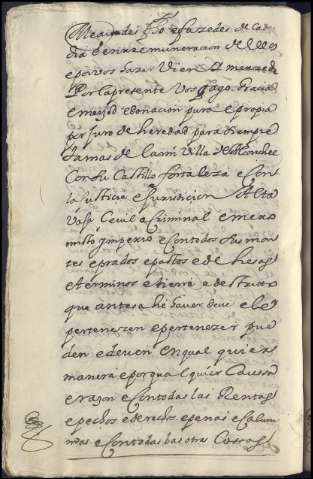 Meavedes fho efasedes de Ca
dia e en rremuneracion de ello
e por vos hazer Vien E merced
Por la presente Vos fago gracia
e merced e donacion pura e propia
por Juro de heredad para siempre
Jamas de la mi Villa de Monchel
Con su Castillo fortaleza e Con
la Justicia e Jurisdicion Alta
Vaja Cevil e Criminal e mero
misto Ymperio e Con todos sus mon
tes e prados e pastos e dehesas
e terminos e tierra e destrito
que antes a hé haver deve e le
pertenezen e pertenezer pue
den e deven en qual quiera
manera e por qual quier Caussa
e razon e Con todas las Rentas
e pechos e derechos e penas e Calum
nias e Con todas las otras Cossas